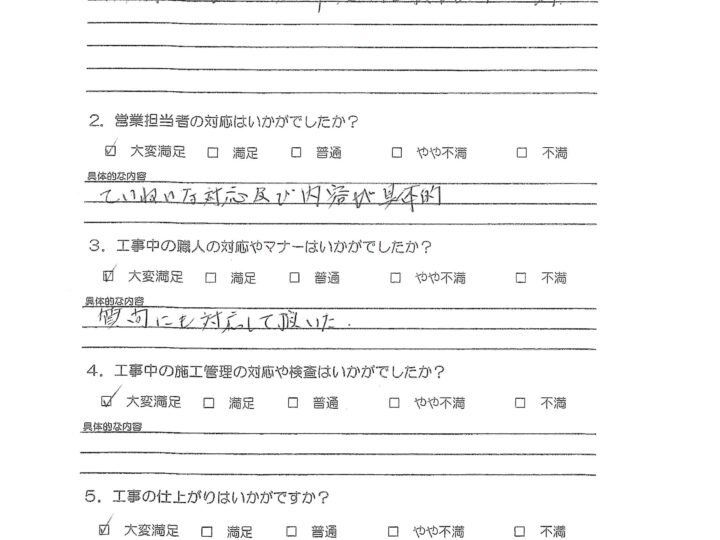 2. 営業担当者の対応はいかがでしたか?
☑ 大変満足 □ 満足 □ 普通 □ やや不満 □ 不満
具体的な内容
ていねいな対応及び内容が具体的
3. 工事中の職人の対応やマナーはいかがでしたか?
☑ 大変満足 □ 満足 □ 普通 □ やや不満 □ 不満
具体的な内容
質問にも対応して頂いた.
4. 工事中の施工管理の対応や検査はいかがでしたか?
☑ 大変満足 □ 満足 □ 普通 □ やや不満 □ 不満
具体的な内容
5. 工事の仕上がりはいかがですか?
☑ 大変満足 □ 満足 □ 普通 □ やや不満 □ 不満